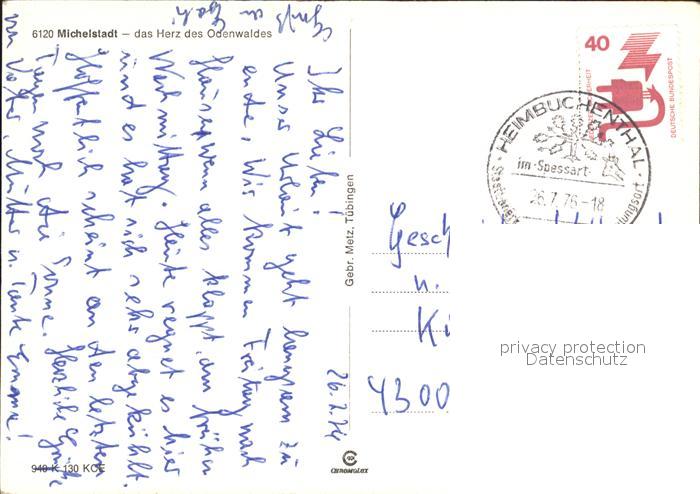 6120 Michelstadt – das Herz des Odenwaldes
26.7.76
Ihr Lieben!
Unser Urlaub geht langsam zu
ende, Wir kommen Freitag nach
Hause, wenn alles klappt, am frühen
Heute regnet es hier
und es hat sich sehr abgekühlt.
Hoffentlich scheint an den letzten
Tagen noch die Sonne. Herzliche Grüße
von Vater, Mutter u. Tante Emma!
Gruß an
Gebr. Metz, Tübingen
40
DEUTSCHE BUNDESPOST
HEIMBUCHENTHAL
im Spessart
26.7.76-18
Gesch
u.
Ki
4300
privacy protection
Datenschutz
940 K 130 KCE
C
CHROMOLUX